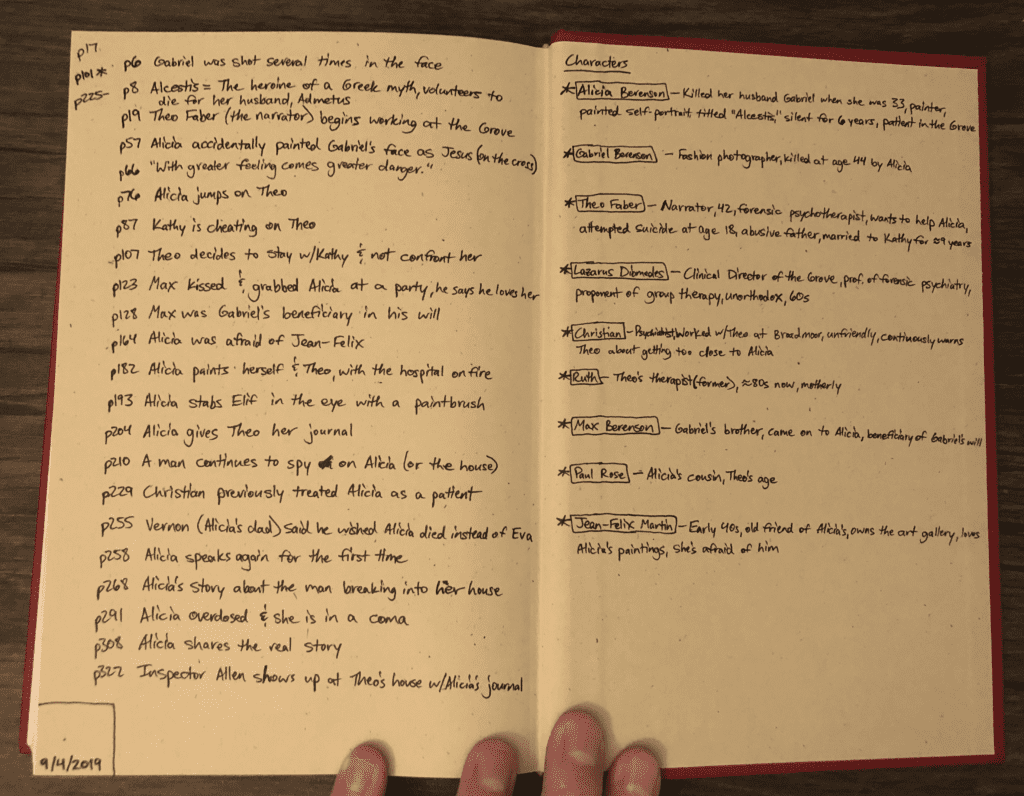 p17
p101*
p225-
p6 Gabriel was shot several times in the face
p8 Alcestis = The heroine of a Greek myth, volunteers to
die for her husband, Admetus
p19 Theo Faber (the narrator) begins working at the Grove
p57 Alicia accidentally painted Gabriel's face as Jesus (on the cross)
p66 "With greater feeling comes greater danger."
p76 Alicia jumps on Theo
p87 Kathy is cheating on Theo
p107 Theo decides to stay w/Kathy & not confront her
p123 Max kissed & grabbed Alicia at a party, he says he loves her
p128 Max was Gabriel's beneficiary in his will
p164 Alicia was afraid of Jean-Felix
p182 Alicia paints herself & Theo, with the hospital on fire
p193 Alicia stabs Elif in the eye with a paintbrush
p204 Alicia gives Theo her journal
p210 A man continues to spy on Alicia (or the house)
p229 Christian previously treated Alicia as a patient
p255 Vernon (Alicia's dad) said he wished Alicia died instead of Eva
p258 Alicia speaks again for the first time
p268 Alicia's story about the man breaking into her house
p291 Alicia overdosed & she is in a coma
p308 Alicia shares the real story
p322 Inspector Allen shows up at Theo's house w/Alicia's journal
9/4/2019
Characters
*Alicia Berenson - Killed her husband Gabriel when she was 33, painter,
painted self-portrait titled "Alcestis," silent for 6 years, patient in the Grove
*Gabriel Berenson - Fashion photographer, killed at age 44 by Alicia
*Theo Faber - Narrator, 42, forensic psychotherapist, wants to help Alicia,
attempted suicide at age 18, abusive father, married to Kathy for ≈9 years
*Lazarus Diomedes - Clinical Director of the Grove, prof. of forensic psychiatry,
proponent of group therapy, unorthodox, 60s
*Christian - Psychiatrist, Worked w/Theo at Broadmoor, unfriendly, continuously warns
Theo about getting too close to Alicia
*Ruth - Theo's therapist (former), ≈80s now, motherly
*Max Berenson - Gabriel's brother, came on to Alicia, beneficiary of Gabriel's will
*Paul Rose - Alicia's cousin, Theo's age
*Jean-Felix Martin - Early 40s, old friend of Alicia's, owns the art gallery, loves
Alicia's paintings, she's afraid of him